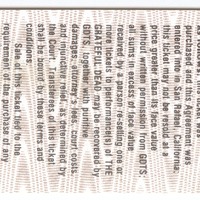 ticket was
purchased and this Agreement was
entered into in San Rafael, California;
this ticket may not be resold at a
price greater than its face value
without written permission from GDTS;
all sums in excess of face value
recovered by a person re-selling one or
more tickets to performance(s) of THE
GRATEFUL DEAD may be recovered by
GDTS, together with punitive
damages, attorney's fees, court costs,
and injunctive relief, as determined by
the Court. Transferees of this ticket
shall be bound by these terms and
conditions.
Sale of this ticket tied to the
requirement of the purchase of any